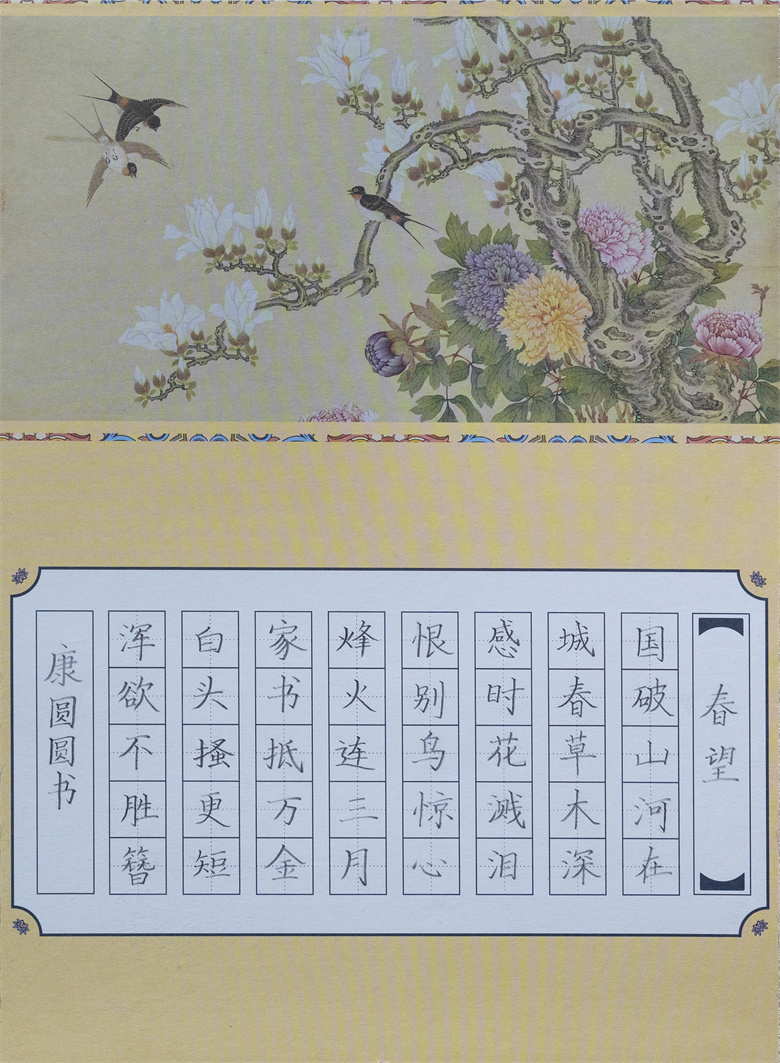 春望
国破山河在
城春草木深
感时花溅泪
恨别鸟惊心
烽火连三月
家书抵万金
白头搔更短
浑欲不胜簪
康圆圆书